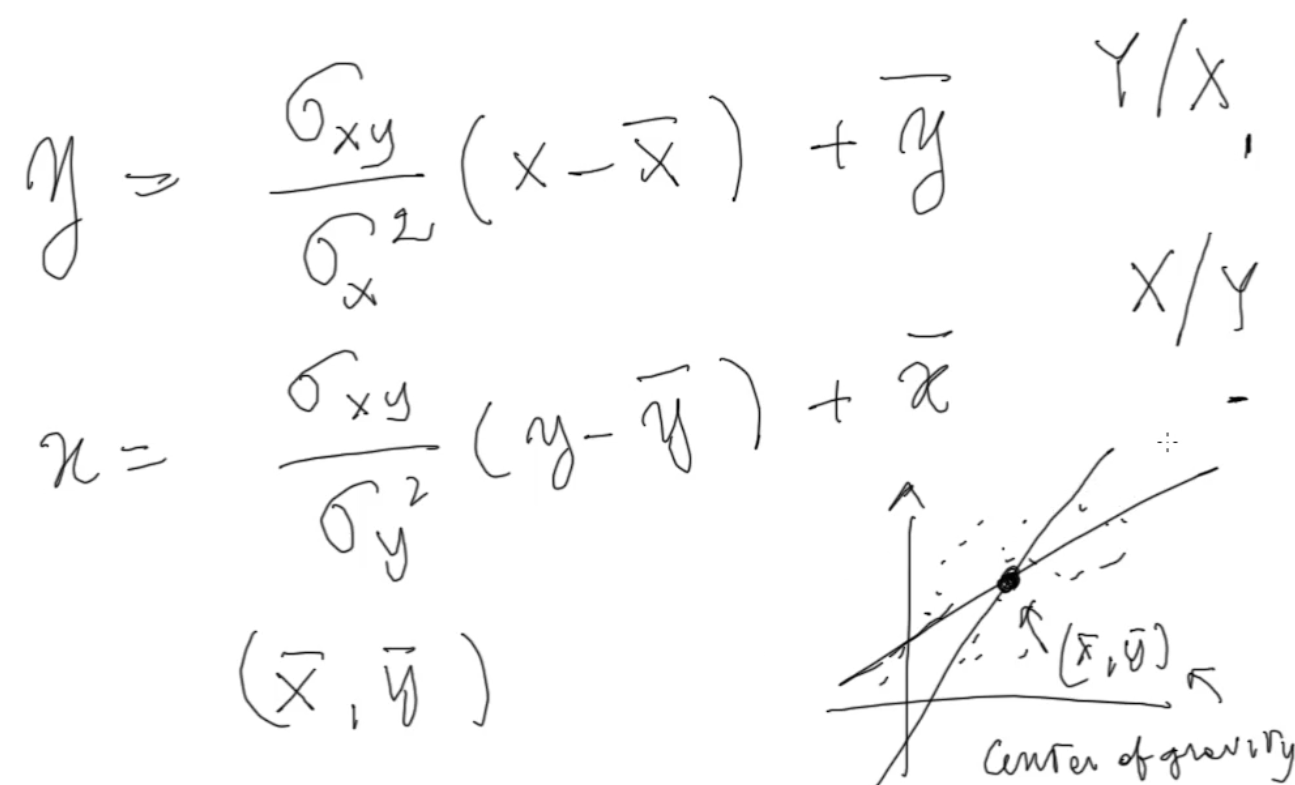 y = σxy/σx² (x − x̄) + ȳ Y/X
x = σxy/σy² (y − ȳ) + x̄ X/Y
(x̄, ȳ)
(x̄, ȳ)
Center of gravity